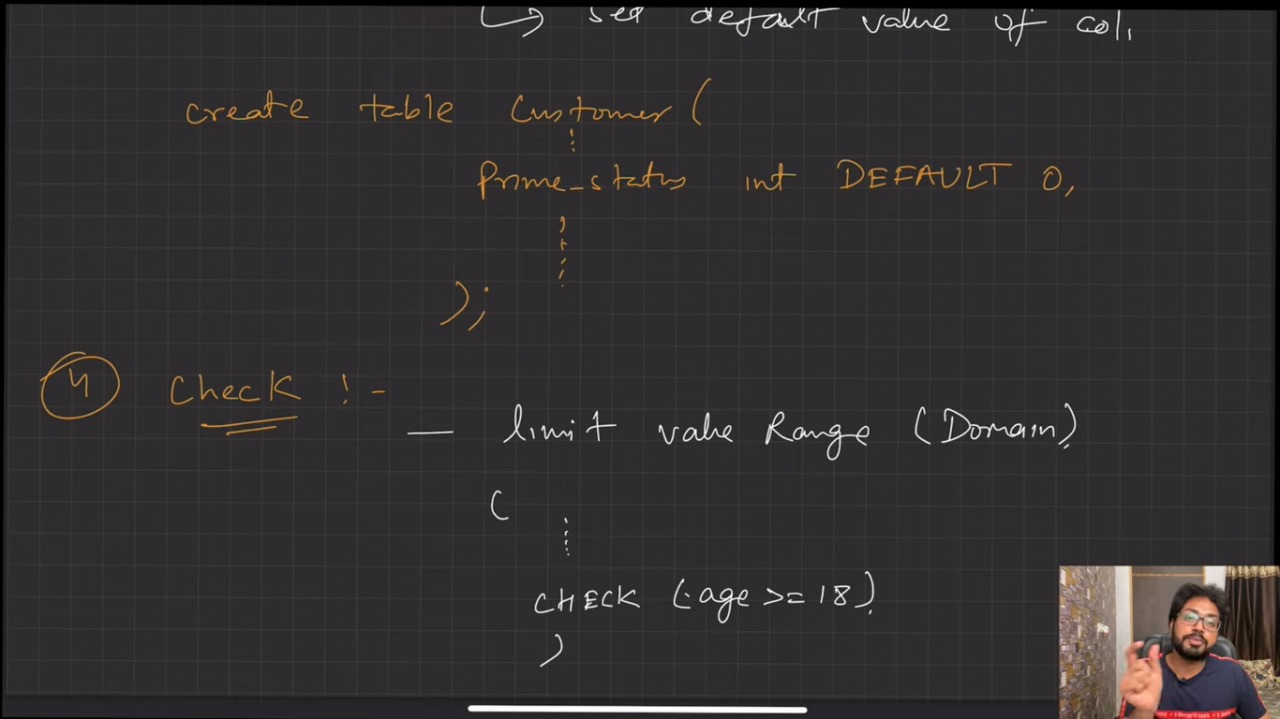 ↳ set default value of col.
create table Customer (
Prime_status int DEFAULT 0,
);
4 Check : -
— limit value Range (Domain)
(
CHECK (age >= 18)
)